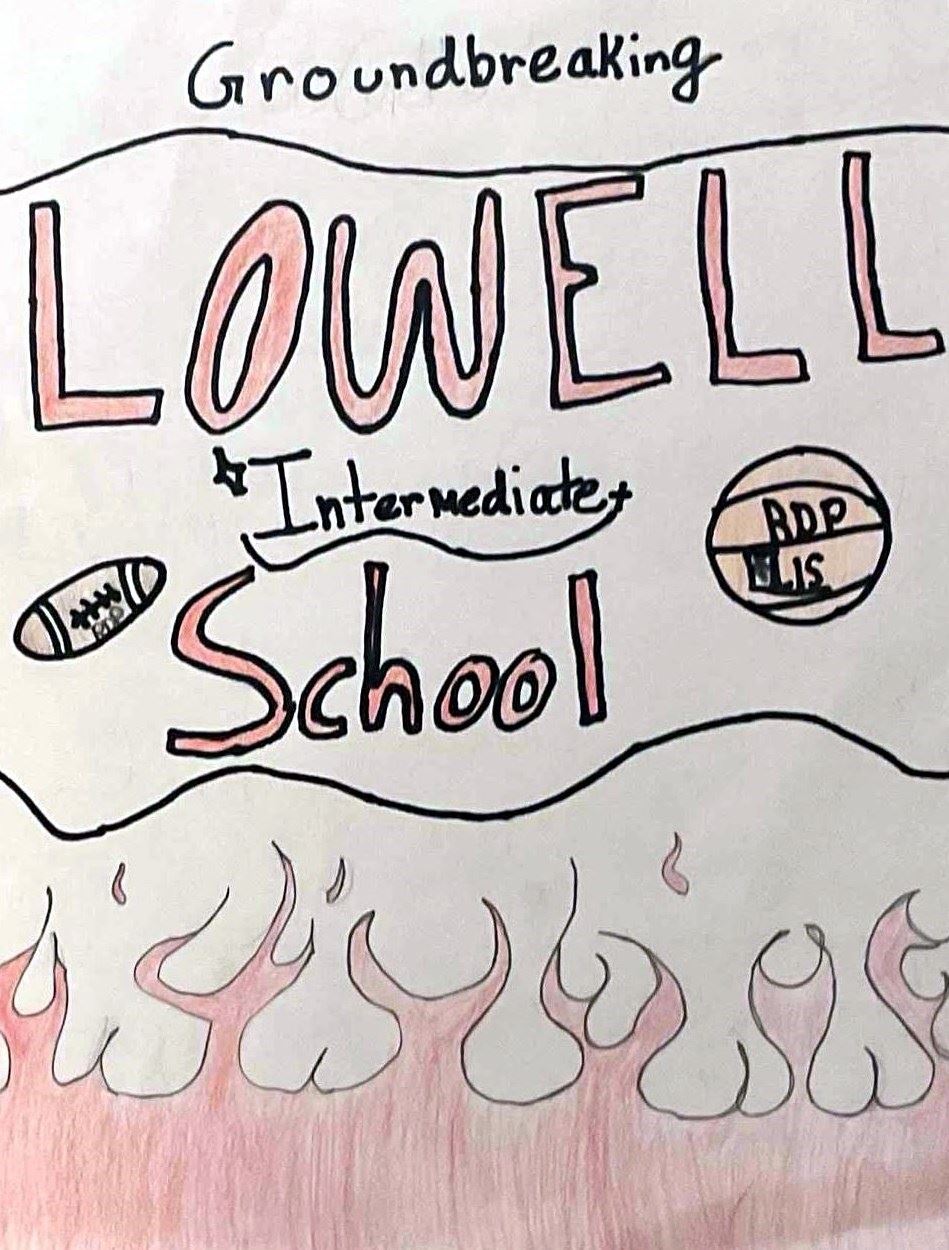 Groundbreaking
LOWELL
Intermediate
School
BDP
LIS